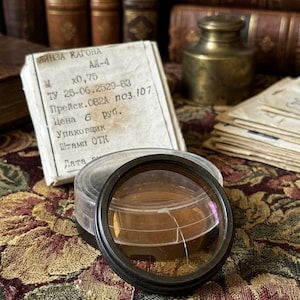 ЛИНЗА КАГОНА
АК-4
М х0,75
ТУ 25-06.2629-83
Прейск.082А поз.107
Цена 6 руб.
Упаковщик
Штамп ОТК
Дата